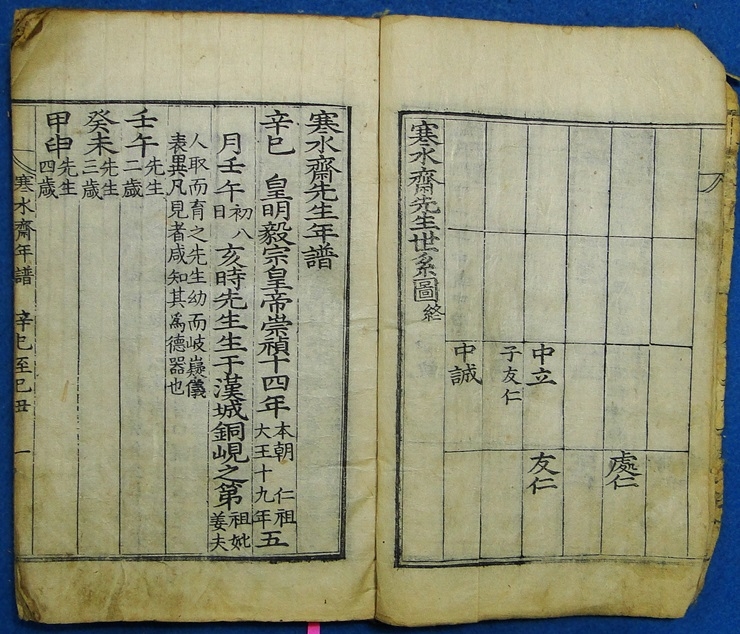 處仁
中立 友仁
子友仁
中誠
寒水齋先生世系圖終
寒水齋先生年譜
辛巳 皇明毅宗皇帝崇禎十四年本朝 仁祖大王十九年五
月壬午初八日亥時先生生于漢城銅峴之第祖妣姜夫
人取而育之先生幼而岐嶷儀
表異凡見者咸知其爲德器也
壬午先生二歲
癸未先生三歲
甲申先生四歲
寒水齋年譜 辛巳至己丑 一